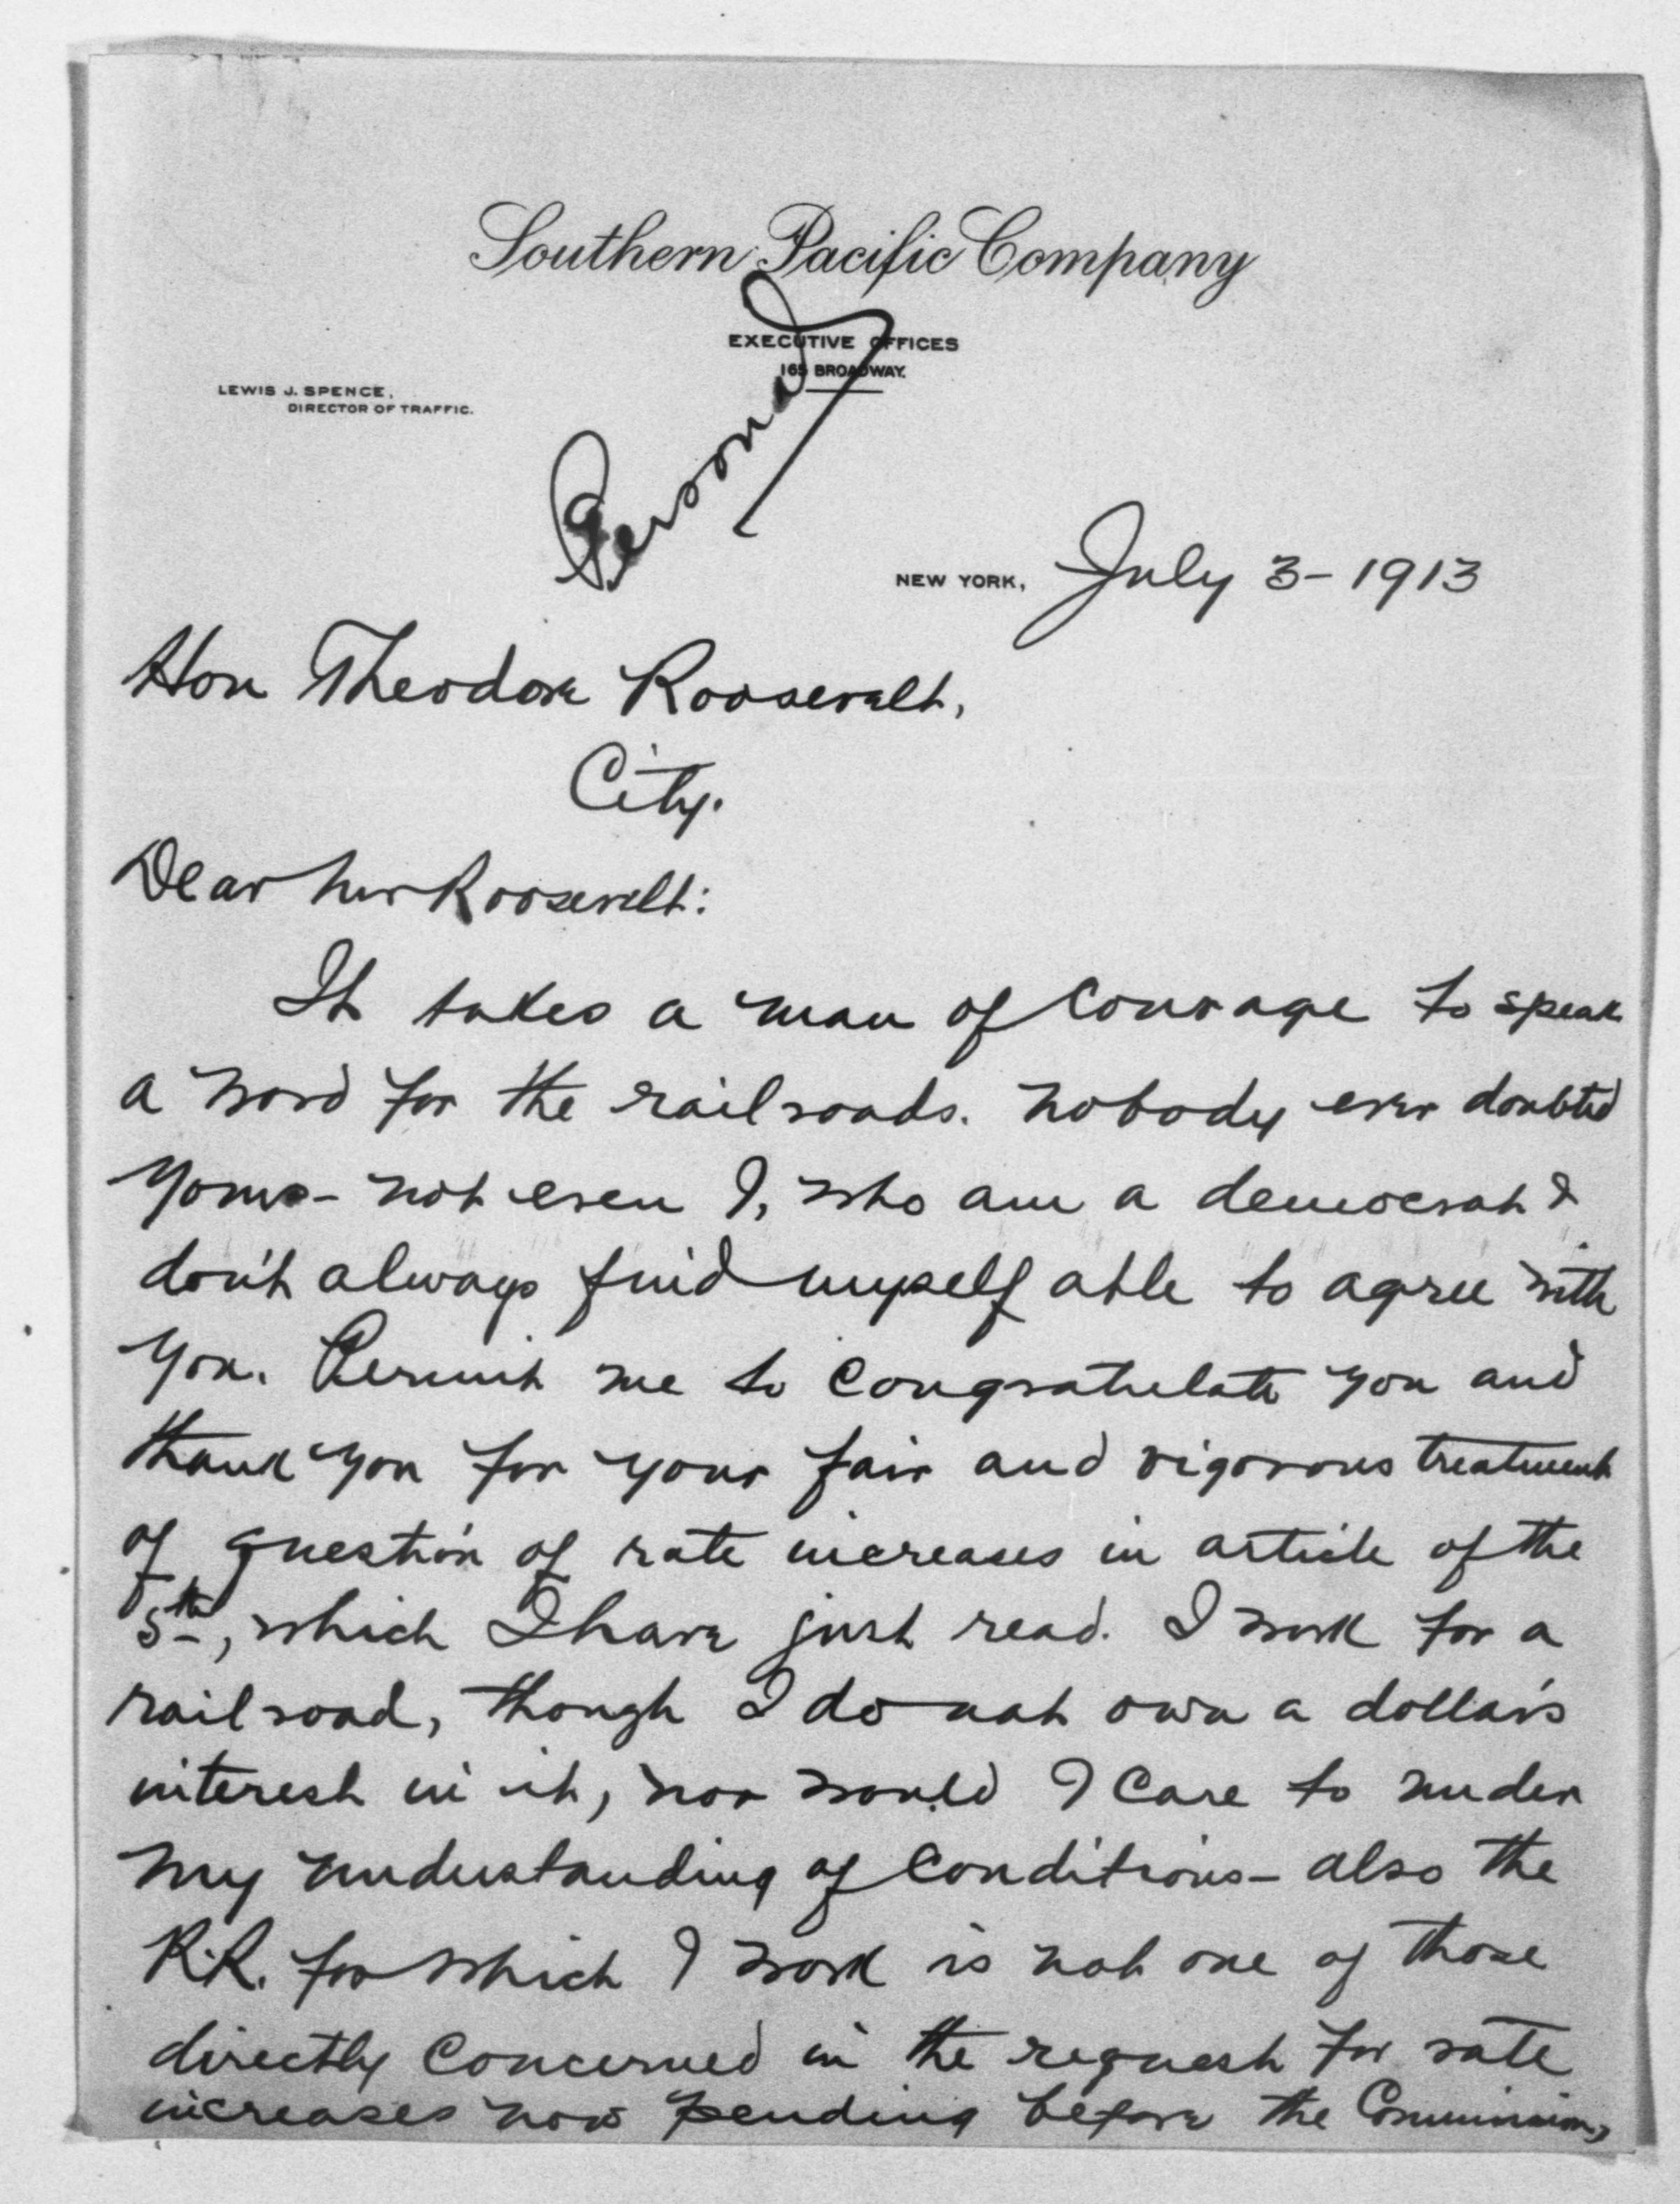 Southern Pacific Company
EXECUTIVE OFFICES
165 BROADWAY.
LEWIS J. SPENCE,
DIRECTOR OF TRAFFIC.
Personal
NEW YORK, July 3 - 1913
Hon Theodore Roosevelt,
City.
Dear Mr Roosevelt:
It takes a man of courage to speak
a word for the railroads. Nobody ever doubted
yours - not even I, who am a democrat &
don't always find myself able to agree with
you. Permit me to congratulate you and
thank you for your fair and vigorous treatment
of question of rate increases in article of the
5th, which I have just read. I work for a
railroad, though I do not own a dollar's
interest in it, nor would I care to under
my understanding of conditions - also the
R.R. for which I work is not one of those
directly concerned in the request for rate
increases now pending before the Commission,